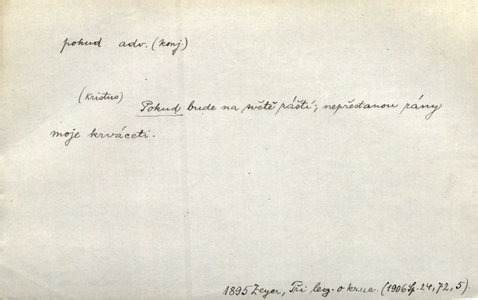 pokud adv. (konj.)
(Kristus) Pokud bude na světě záští, nepřestanou rány
moje krváceti.
1895 Zeyer, Tři leg. o kruc. (1906 Sp. 24, 72, 5).